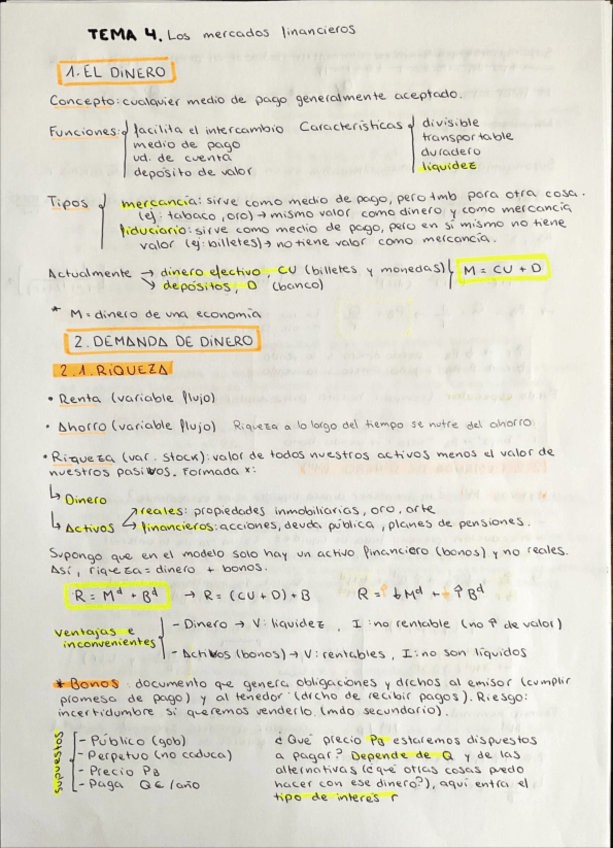 TEMA 4. Los mercados financieros
1. EL DINERO
Concepto: cualquier medio de pago generalmente aceptado.
Funciones: facilita el intercambio
medio de pago
ud. de cuenta
depósito de valor
Características divisible
transportable
duradero
liquidez
Tipos mercancía: sirve como medio de pago, pero tmb para otra cosa.
(ej: tabaco, oro) → mismo valor como dinero y como mercancía
fiduciario: sirve como medio de pago, pero en sí mismo no tiene
valor (ej: billetes) → no tiene valor como mercancía.
Actualmente → dinero efectivo, CU (billetes y monedas)
↘ depósitos, D (banco)
M = CU + D
* M = dinero de una economía
2. DEMANDA DE DINERO
2.1. RIQUEZA
• Renta (variable flujo)
• Ahorro (variable flujo) Riqueza a lo largo del tiempo se nutre del ahorro
• Riqueza (var. stock): valor de todos nuestros activos menos el valor de
nuestros pasivos. Formada x:
↳ Dinero
↳ Activos ↗ reales: propiedades inmobiliarias, oro, arte
↘ financieros: acciones, deuda pública, planes de pensiones.
Supongo que en el modelo solo hay un activo financiero (bonos) y no reales.
Así, riqueza = dinero + bonos.
R = Mᵈ + Bᵈ → R = (CU + D) + B R = ↓ Mᵈ + ↑ Bᵈ
Ventajas e
inconvenientes
- Dinero → V: liquidez, I: no rentable (no ↑ de valor)
- Activos (bonos) → V: rentables, I: no son líquidos
* Bonos: documento que genera obligaciones y drchos al emisor (cumplir
promesa de pago) y al tenedor (drcho de recibir pagos). Riesgo:
incertidumbre si queremos venderlo (mdo secundario).
supuestos
- Público (gob)
- Perpetuo (no caduca)
- Precio PB
- Paga Q€/año
¿Qué precio PB estaremos dispuestos
a pagar? Depende de Q y de las
alternativas (¿qué otras cosas puedo
hacer con ese dinero?), aquí entra el
tipo de interés r